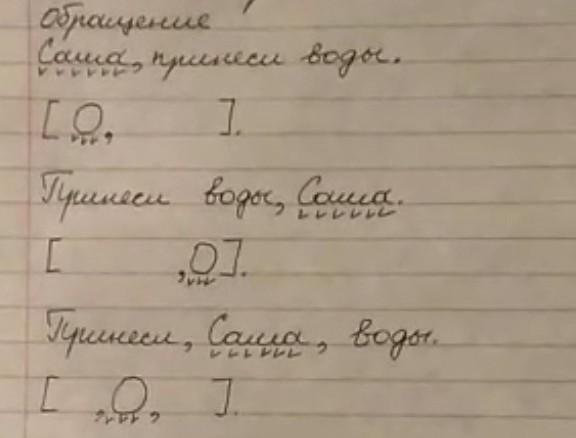 Обращение
Саша, принеси воды.
[ О, ].
Принеси воды, Саша.
[ , О ].
Принеси, Саша, воды.
[ , О, ].